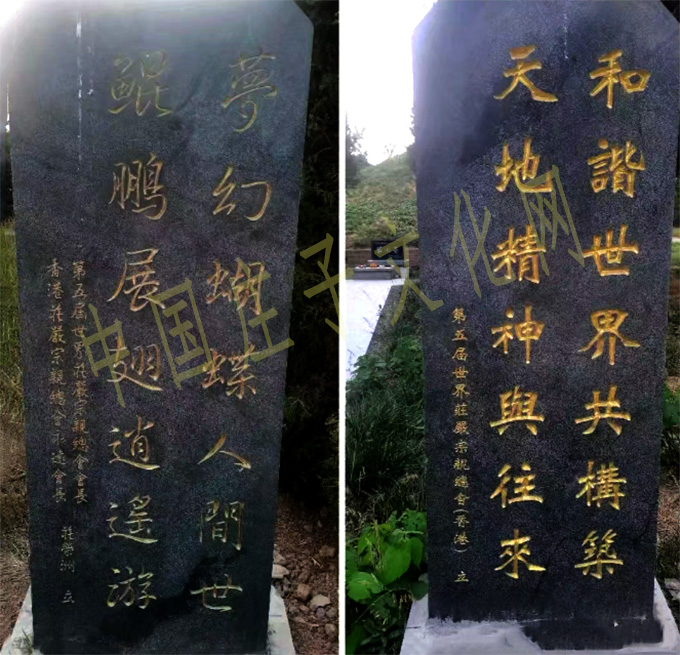 夢幻蝴蝶人間世
鯤鵬展翅逍遙游
第五屆世界莊嚴宗親總會會長
香港莊嚴宗親總會永遠會長
莊學洲 立
和諧世界共構築
天地精神與往來
第五屆世界莊嚴宗親總會(香港) 立
中国庄子文化网